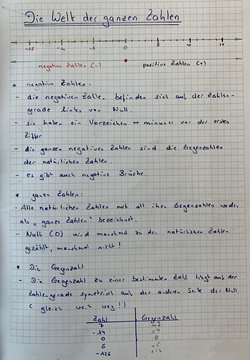 Die Welt der ganzen Zahlen
-15 -10 -5 0 5 10 15
negative Zahlen (-) positive Zahlen (+)
* negative Zahlen:
- die negativen Zahlen befinden sich auf der Zahlen-
grade links von Null
- sie haben ein Vorzeichen minus vor der ersten
Ziffer
- die ganzen negativen Zahlen sind die Gegenzahlen
der natürlichen Zahlen.
- es gibt auch negative Brüche.
* ganze Zahlen:
- Alle natürlichen Zahlen und all ihre Gegenzahlen werden
als "ganze Zahlen" bezeichnet.
- Null (0) wird manchmal zu den natürlichen Zahlen
gezählt, manchmal nicht!
* Die Gegenzahl
- Die Gegenzahl zu einer bestimmten Zahl liegt auf der
Zahlengrade symetrisch auf der anderen Seite der Null
(gleich weit weg!)
Zahl Gegenzahl
7 -7
-14 14
0 0
5 -5
-126 126